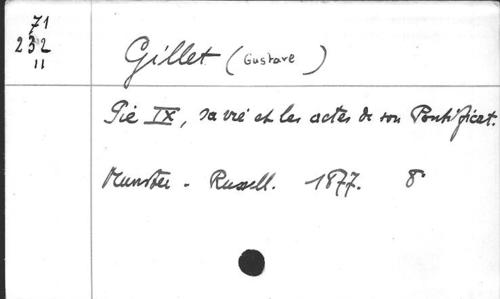 71
232
11
Gillet (Gustave)
Pie IX, sa vie et les actes de son Pontificat.
Munster - Russell. 1877. 8°